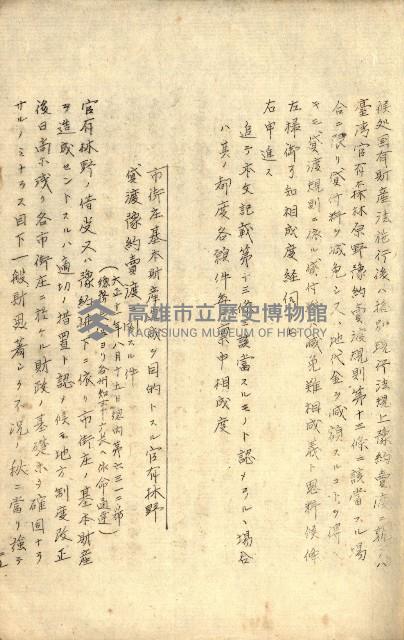 候処国有財産法施行後ハ特別現行法規上豫約賣渡ノ新ニハ
臺湾官有森林原野豫約賣渡規則第十三條ニ該當スル場
合ニ限リ貸付料ヲ減免シ又ハ地代金ヲ減額スルコトヲ得ヘ
キモ貸渡規則ニ依ル貸付料ハ減免難相成義ト思料候條
左様御了知相成度経伺ノ上
右申進ス
追テ本文記載第十三條ニ該當スルモノト認メラルヽ場合
ハ其ノ都度各領件毎ニ稟申相成度
市街庄基本財産造成ヲ目的トスル官有林野
貸渡豫約賣渡ニ関スル件
(大正十年八月十五日總内第六三一二號
總務長官ヨリ各州知事廳長ヘ依命通達)
官有林野ノ借受又ハ豫約賣渡ニ依リ市街庄ノ基本財産
ヲ造成セントスルハ適切ノ措置ト認メ候モ地方制度改正
後日尚ホ浅ク各市街庄ニ於ケル財政ノ基礎未タ確固ナラ
サルノミナラス目下一般財界著シク不況ノ秋ニ當リ強テ
高雄市立歷史博物館
KAOHSIUNG MUSEUM OF HISTORY